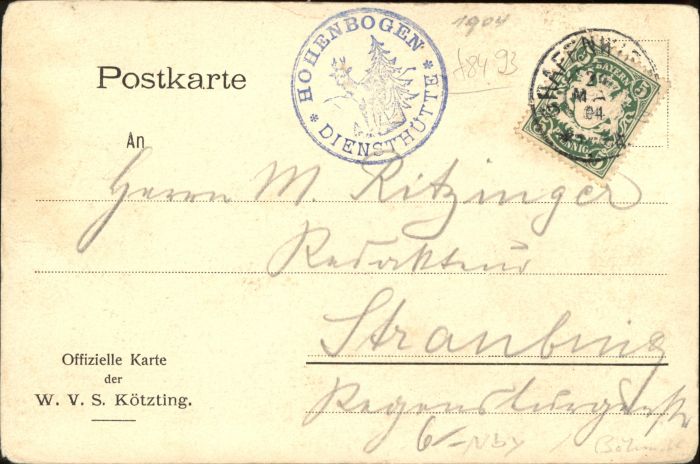 1904
f84 93
* HOHENBOGEN *
DIENSTHÜTTE
BAYERN
5 5
PFENNIG
M 04
Postkarte
An
Herrn M. Ritzinger
Redakteur
Straubing
Regensburgerstr
6/ Nby
Offizielle Karte
der
W. V. S. Kötzting.